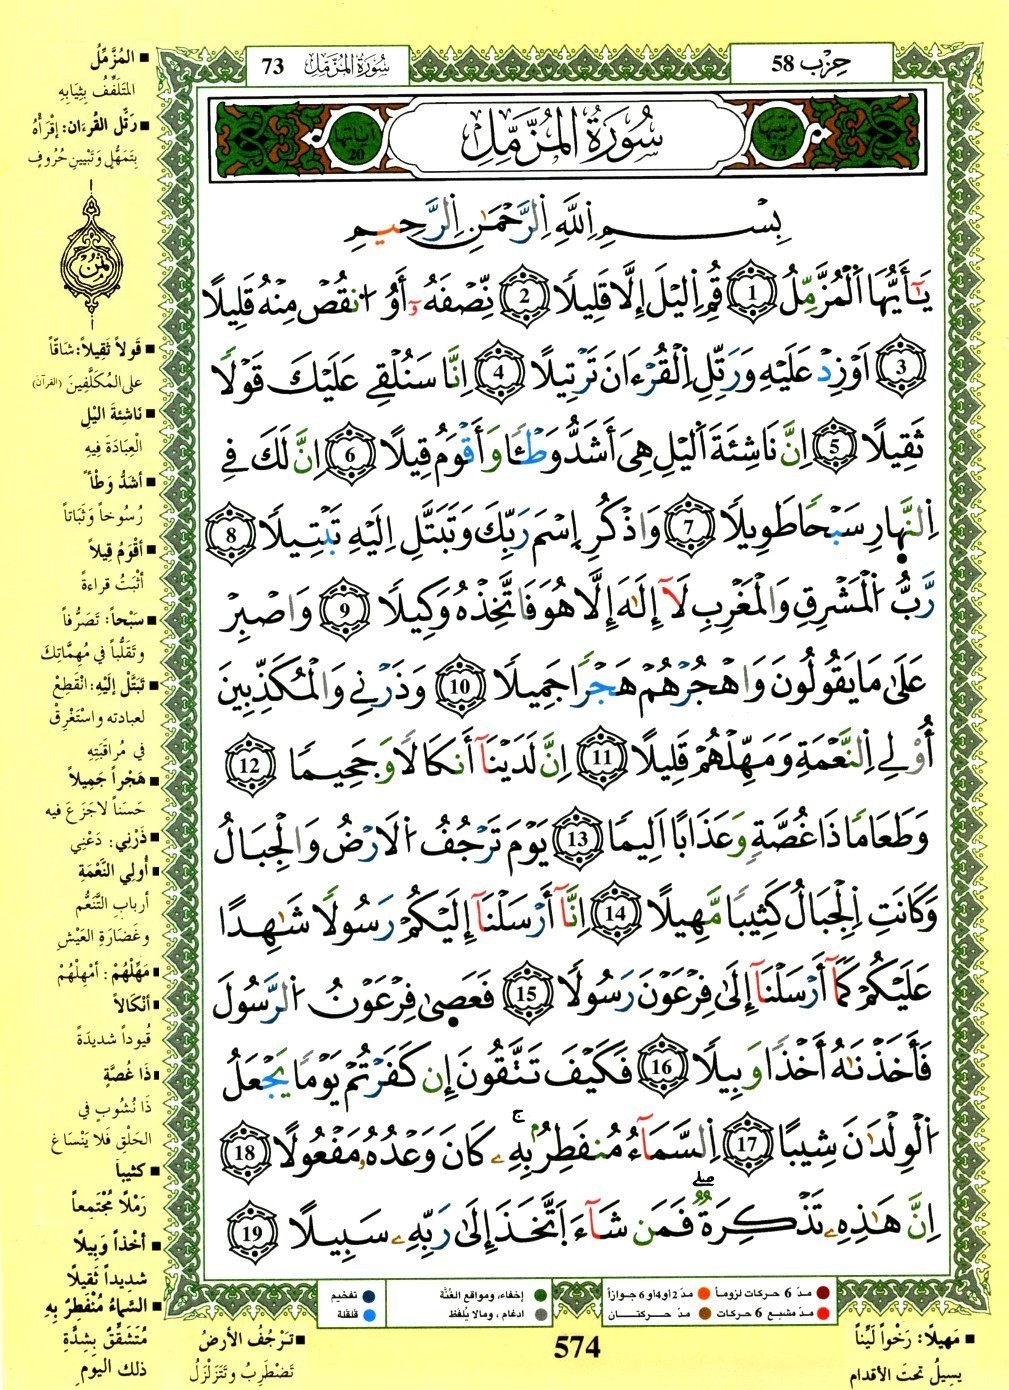 حِزْب 58
سُورَةُ الْمُزَّمِّلِ 73
ترتيبها 73
سُورَةُ الْمُزَّمِّلِ
آياتها 20
بِسْمِ اِللَّهِ اِلرَّحْمَٰنِ اِلرَّحِيمِ
يَٰٓأَيُّهَا اَلْمُزَّمِّلُ 1 قُمِ اِليْلَ إِلَّا قَلِيلًا 2 نِّصْفَهُۥٓ أَوُ اُنقُصْ مِنْهُ قَلِيلًا
3 اَوْ زِدْ عَلَيْهِ وَرَتِّلِ اِلْقُرْءَانَ تَرْتِيلًا 4 اِنَّا سَنُلْقِے عَلَيْكَ قَوْلًا
ثَقِيلًا 5 اِنَّ نَاشِئَةَ اَليْلِ هِيَ أَشَدُّ وَطْـٔٗا وَأَقْوَمُ قِيلًا 6 اِنَّ لَكَ فِے
اِلنَّهارِ سَبْحٗا طَوِيلًا 7 وَاذْكُرِ اِسْمَ رَبِّكَ وَتَبَتَّلِ اِلَيْهِ تَبْتِيلًا 8
رَّبُّ اُلْمَشْرِقِ وَالْمَغْرِبِ لَآ إِلَٰهَ إِلَّا هُوَ فَاتَّخِذْهُ وَكِيلًا 9 وَاصْبِرْ
عَلَىٰ مَا يَقُولُونَ وَاهْجُرْهُمْ هَجْرًا جَمِيلًا 10 وَذَرْنِے وَالْمُكَذِّبِينَ
أُوْلِے اِلنَّعْمَةِ وَمَهِّلْهُمْ قَلِيلًا 11 اِنَّ لَدَيْنَآ أَنكَالًا وَجَحِيمًا 12
وَطَعَامًا ذَا غُصَّةٍ وَعَذَابًا اَلِيمًا 13 يَوْمَ تَرْجُفُ اُلَارْضُ وَالْجِبَالُ
وَكَانَتِ اِلْجِبَالُ كَثِيبًا مَّهِيلًا 14 اِنَّآ أَرْسَلْنَآ إِلَيْكُمْ رَسُولًا شَٰهِدًا
عَلَيْكُمْ كَمَآ أَرْسَلْنَآ إِلَىٰ فِرْعَوْنَ رَسُولًا 15 فَعَصىٰ فِرْعَوْنُ اُلرَّسُولَ
فَأَخَذْنَٰهُ أَخْذًا وَبِيلًا 16 فَكَيْفَ تَتَّقُونَ إِن كَفَرْتُمْ يَوْمًا يَجْعَلُ
اُلْوِلْدَٰنَ شِيبًا 17 اِلسَّمَآءُ مُنفَطِرٌۢ بِهِۦ كَانَ وَعْدُهُۥ مَفْعُولًا 18
اِنَّ هَٰذِهِۦ تَذْكِرَةٌ فَمَن شَآءَ اَتَّخَذَ إِلَىٰ رَبِّهِۦ سَبِيلًا 19
■ الْمُزَّمِّلُ
المُتَلَفِّفُ بِثِيَابِهِ
■ رَتِّلِ القُرْءَانَ: إِقْرَأْهُ
بِتَمَهُّلٍ وَتَبْيِينِ حُرُوفٍ
ثمن
■ قَوْلاً ثَقِيلاً: شَاقّاً
على المُكَلَّفِينَ (القرآن)
■ نَاشِئَةَ اليْلِ
الْعِبَادَةَ فِيهِ
■ أَشَدُّ وَطْأً
رُسُوخاً وَثَبَاتاً
■ أَقْوَمُ قِيلاً
أَثْبَتُ قراءةً
■ سَبْحاً: تَصَرُّفاً
وتَقَلُّباً في مُهِمَّاتِكَ
■ تَبَتَّلْ إِلَيْهِ: انْقَطِعْ
لعبادته واسْتَغْرِقْ
في مُرَاقَبَتِهِ
■ هَجْراً جَمِيلاً
حَسَناً لا جَزَعَ فيه
■ ذَرْنِي: دَعْنِي
■ أُولِي النَّعْمَةِ
أربابِ التَّنَعُّمِ
وغَضَارَةِ العَيْشِ
■ مَهِّلْهُمْ: أَمْهِلْهُمْ
■ أَنْكَالاً
قُيوداً شديدَةً
■ ذَا غُصَّةٍ
ذَا نُشُوبٍ في
الحَلْقِ فَلا يَنْسَاغ
■ كَثِيباً
رَمْلًا مُجْتَمِعاً
■ أَخْذاً وَبِيلًا
شديداً ثَقِيلًا
■ السَّمَاءُ مُنْفَطِرٌ بِهِ
مُتَشَقِّقٌ بِشِدَّةِ
ذلك اليومِ
مدّ 6 حركات لزوماً مدّ 2 أو 4 أو 6 جوازاً إخفاء، ومواقع الغُنَّة تفخيم
مدّ مشبع 6 حركات مدّ حركتان ادغام، ومالا يُلفظ قلقلة
■ مَهِيلًا: رَخْواً لَيِّناً
يسيلُ تحتَ الأقدام
574
■ تَرْجُفُ الأرضُ
تَضْطَرِبُ وتَتَزَلْزَلُ